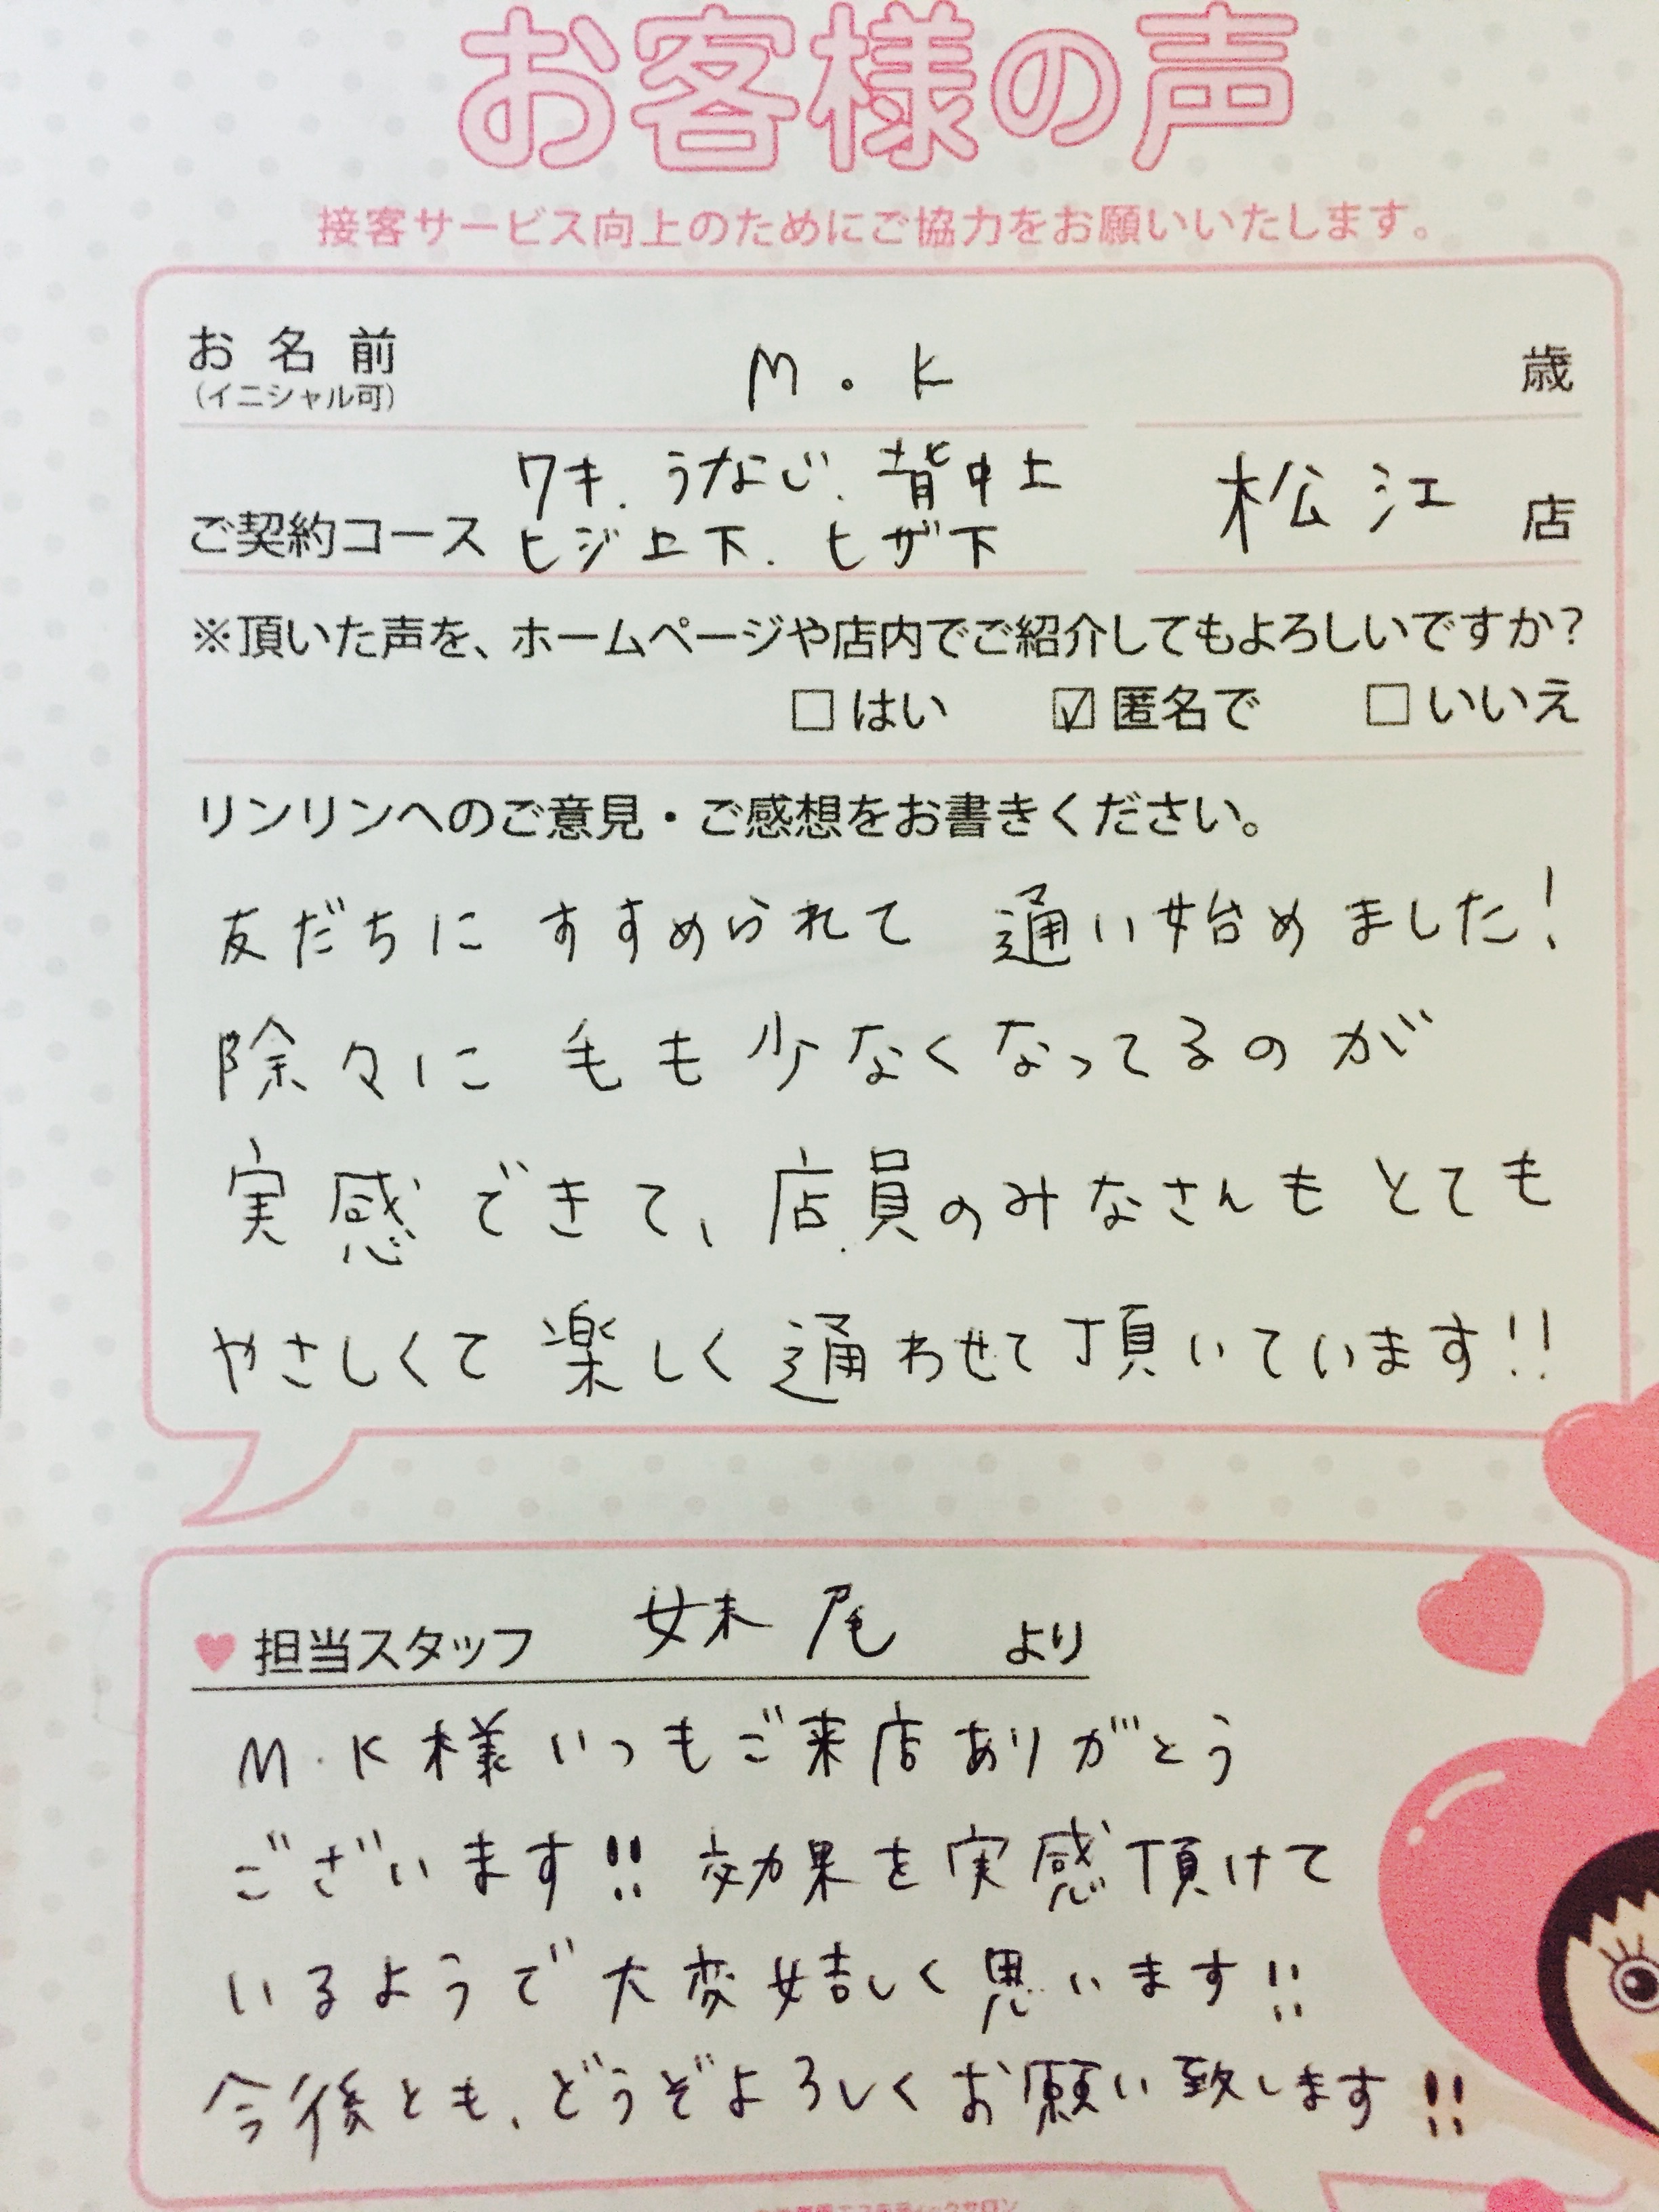 お客様の声
接客サービス向上のためにご協力をお願いいたします。
お名前 M.K 歳
(イニシャル可)
ワキ.うなじ.背中上
ご契約コース ヒジ上下.ヒザ下 松江店
※頂いた声を、ホームページや店内でご紹介してもよろしいですか?
□はい ☑匿名で □いいえ
リンリンへのご意見・ご感想をお書きください。
友だちにすすめられて 通い始めました!
除々に 毛も少なくなってるのが
実感できて、店員のみなさんもとても
やさしくて楽しく通わせて頂いています!!
♥担当スタッフ 妹尾 より
M.K様いつもご来店ありがとう
ございます!! 効果を実感頂けて
いるようで大変嬉しく思います!!
今後とも、どうぞよろしくお願い致します!!